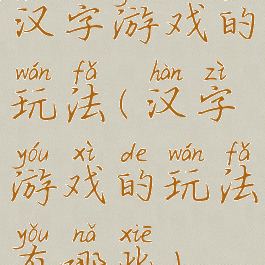 汉字游戏的
wán fǎ hàn zì
玩法(汉字
yóu xì de wán fǎ
游戏的玩法
yǒu nǎ xiē
有哪些)